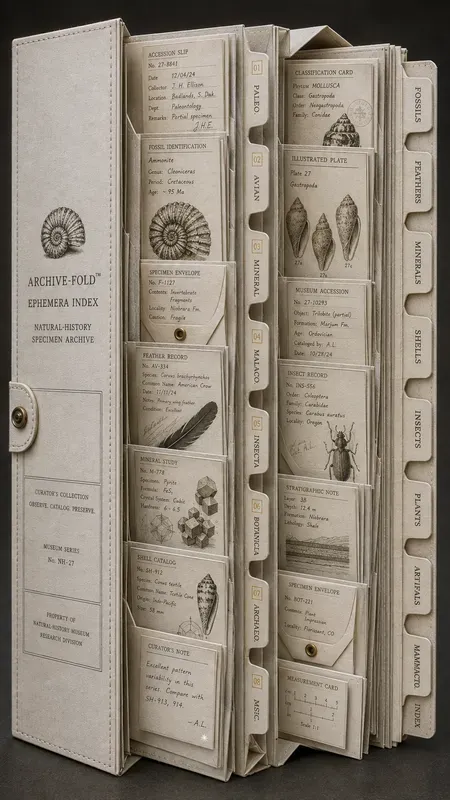 ARCHIVE-FOLD™
EPHEMERA INDEX
NATURAL-HISTORY
SPECIMEN ARCHIVE
CURATOR'S COLLECTION
OBSERVE, CATALOG, PRESERVE.
MUSEUM SERIES
No. NH-27
PROPERTY OF
NATURAL-HISTORY MUSEUM
RESEARCH DIVISION
ACCESSION SLIP
No. 27-8841
Date 12/04/24
Collector J. H. Ellison
Location Badlands, S. Dak.
Dept. Paleontology
Remarks: Partial specimen
J.H.E.
FOSSIL IDENTIFICATION
Ammonite
Genus: Cleoniceras
Period: Cretaceous
Age: ~95 Ma
SPECIMEN ENVELOPE
No. F-1127
Contents: Invertebrate
Fragments
Locality: Niobrara Fm.
Caution: Fragile
FEATHER RECORD
No. AV-334
Species: Corvus brachyrhynchos
Common Name: American Crow
Date: 11/15/24
Notes: Primary wing feather
Condition: Excellent
MINERAL STUDY
No. M-778
Specimen: Pyrite
Formula: FeS₂
Crystal System: Cubic
Hardness: 6-6.5
SHELL CATALOG
No. SH-912
Species: Conus textile
Common Name: Textile Cone
Origin: Indo-Pacific
Size: 58 mm
CURATOR'S NOTE
Excellent pattern
variability in this
series. Compare with
SH-913, 914.
—A.L.
01 PALEO
02 AVIAN
03 MINERAL
04 MALACO.
05 INSECTA
06 BOTANICIA
07 ARCHAEO.
08 MSIC.
CLASSIFICATION CARD
Phylum: MOLLUSCA
Class: Gastropoda
Order: Neogastropoda
Family: Conidae
ILLUSTRATED PLATE
Plate 27
Gastropoda
27a 27c
MUSEUM ACCESSION
No. 27-10293
Object: Trilobite (partial)
Formation: Marjum Fm.
Age: Ordovician
Cataloged by: A.L.
Date: 10/28/24
INSECT RECORD
No. INS-556
Order: Coleoptera
Family: Carabidae
Species: Carabus auratus
Locality: Oregon
STRATIGRAPHIC NOTE
Layer: 3B
Depth: 12.4 m
Formation: Niobrara
Lithology: Shale
SPECIMEN ENVELOPE
No. BOT-221
Contents: Plant
Impression
Locality: Florissant, CO
MEASUREMENT CARD
Scale 1:1
FOSSILS
FEATHERS
MINERALS
SHELLS
INSECTS
PLANTS
ARTIFALS
MAMMACTO.
INDEX